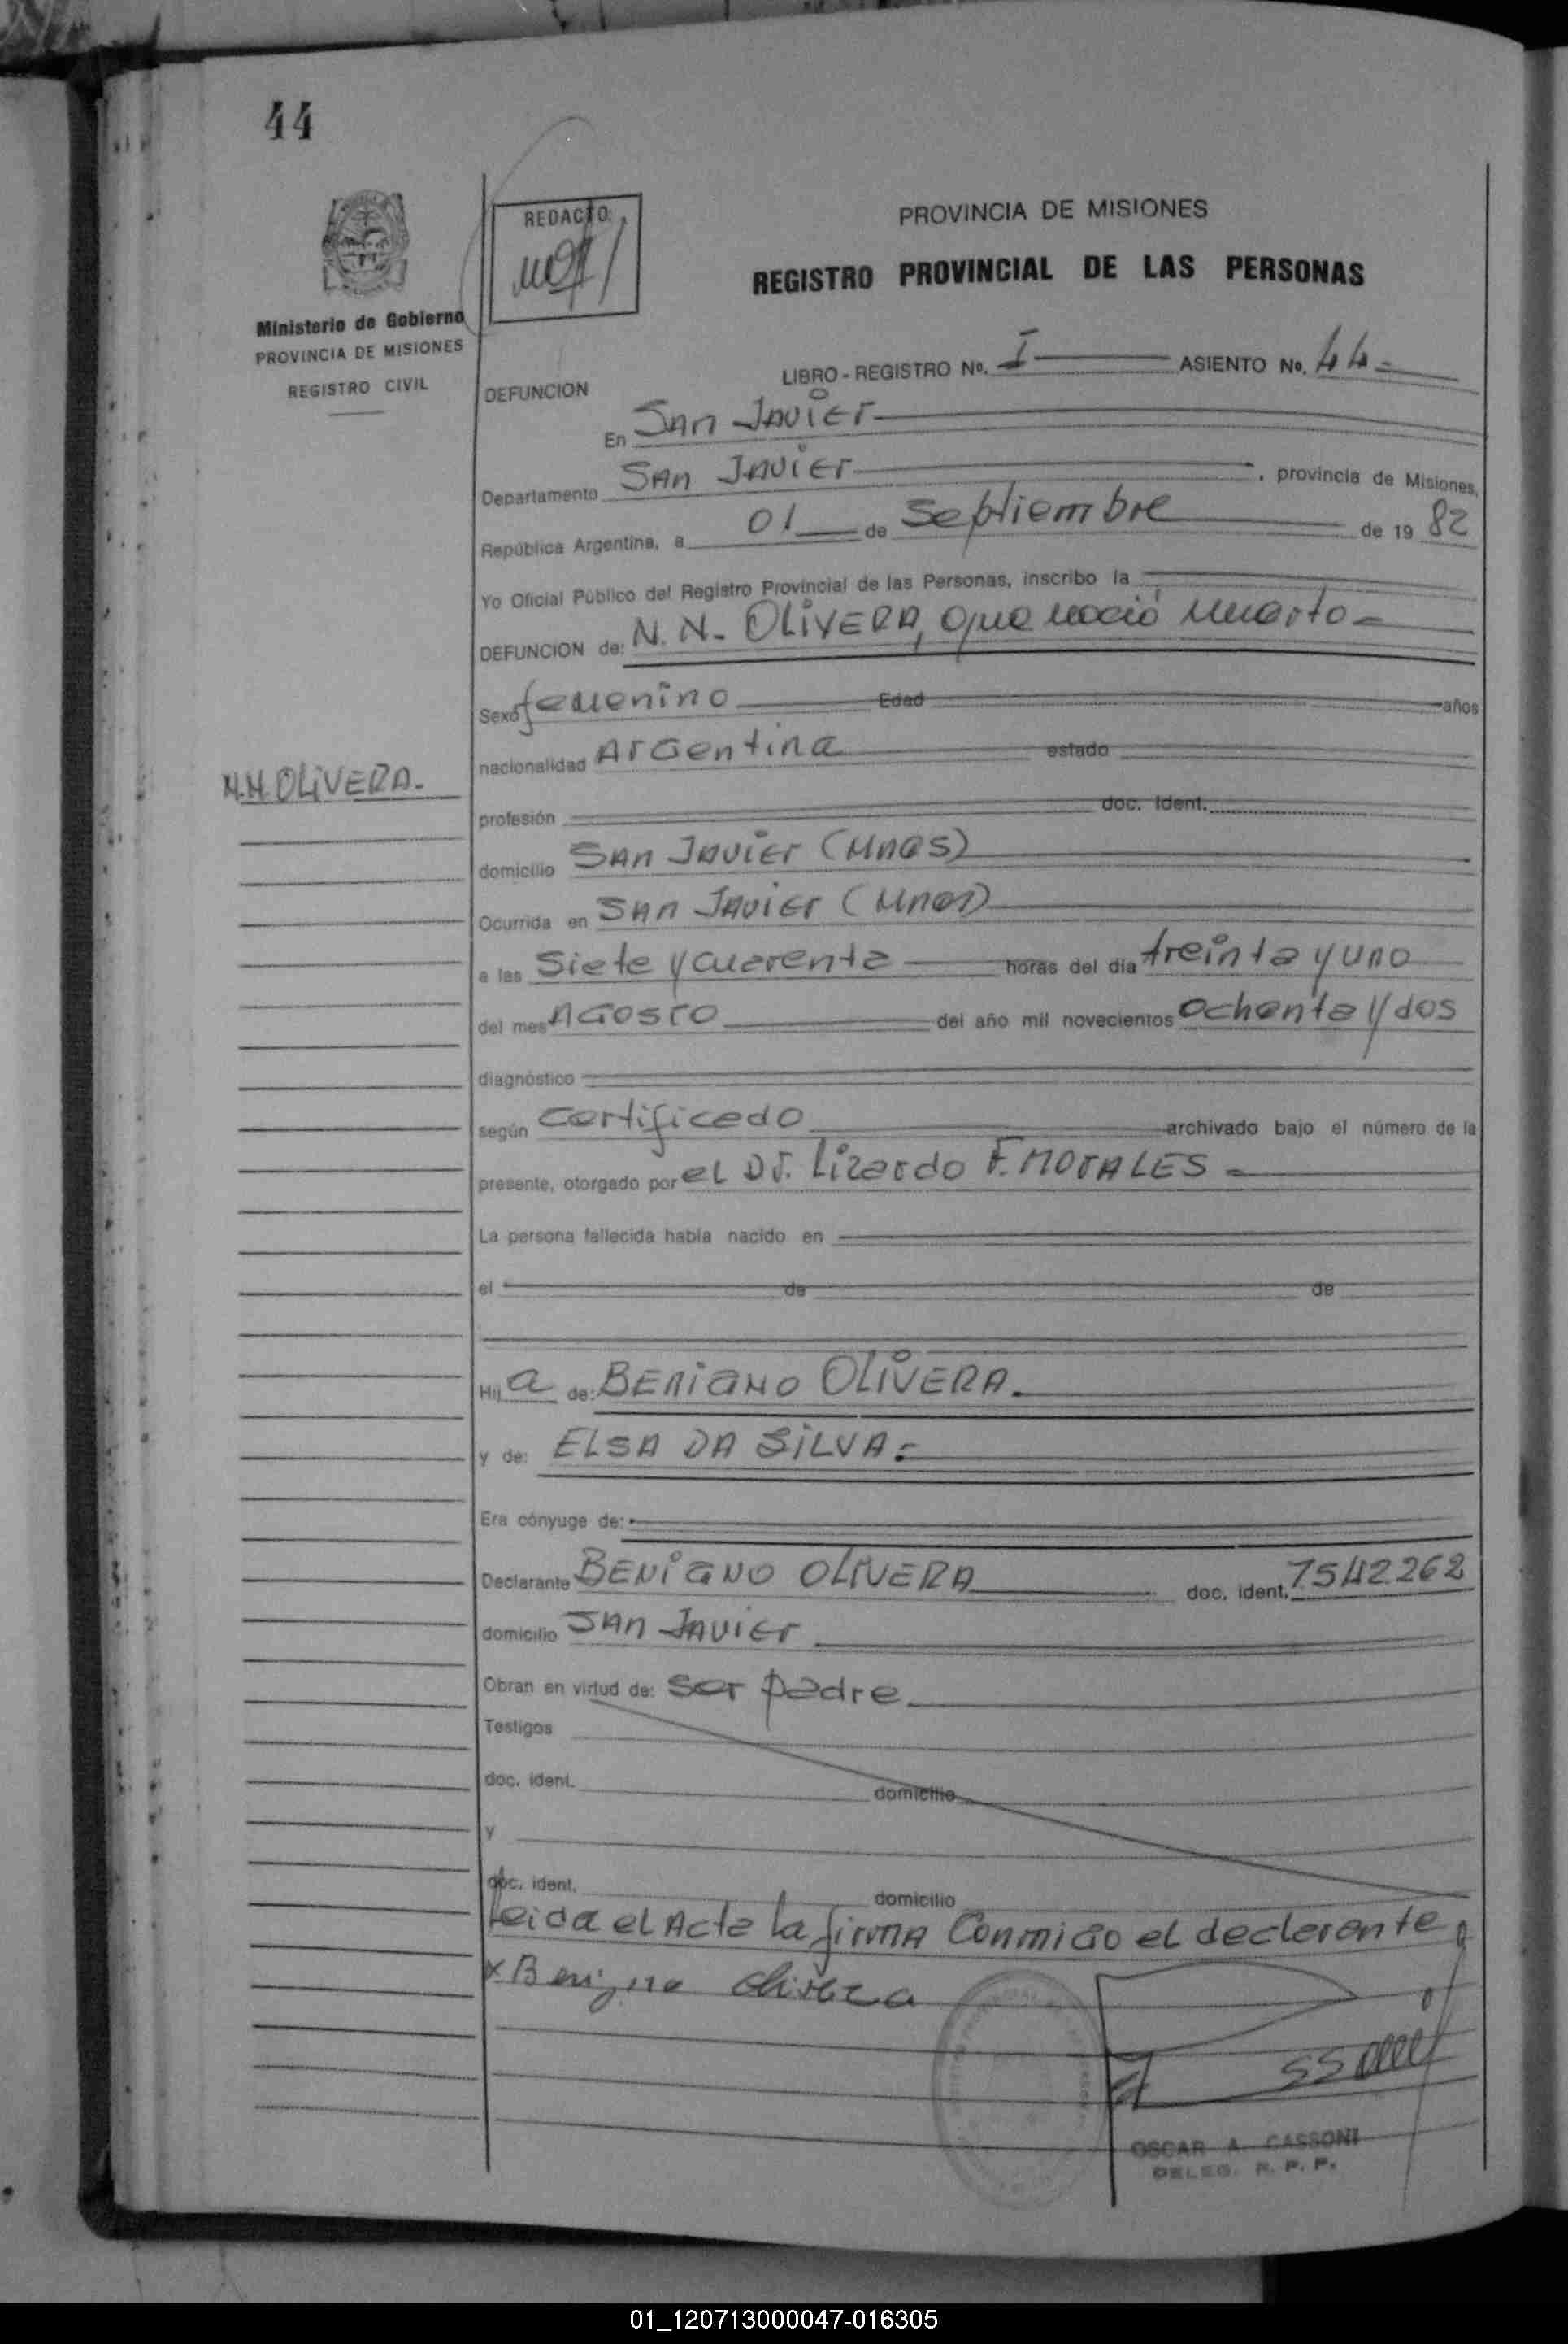 44
REDACTO:
PROVINCIA DE MISIONES
REGISTRO PROVINCIAL DE LAS PERSONAS
Ministerio de Gobierno
PROVINCIA DE MISIONES
REGISTRO CIVIL
LIBRO - REGISTRO No. I ASIENTO No. 44
DEFUNCION
En San Javier
Departamento San Javier, provincia de Misiones,
República Argentina, a 01 de Septiembre de 19 82
Yo Oficial Público del Registro Provincial de las Personas, inscribo la
DEFUNCION de: N.N. OLIVERA, que nació muerto
Sexo femenino Edad años
nacionalidad Argentina estado
N.N. OLIVERA.
profesión doc. ident.
domicilio San Javier (Mnes)
Ocurrida en San Javier (Mnes)
a las Siete y cuarenta horas del día treinta y uno
del mes AGOSTO del año mil novecientos ochenta y dos
diagnóstico
según certificado archivado bajo el número de la
presente, otorgado por el Dr. Lizardo F. MORALES
La persona fallecida había nacido en
el de de
Hij a de: BENIGNO OLIVERA.
y de: ELSA DA SILVA
Era cónyuge de:
Declarante BENIGNO OLIVERA doc. ident. 7.542.262
domicilio San Javier
Obran en virtud de: ser padre
Testigos
doc. ident. domicilio
y
doc. ident. domicilio
Leida el Acta la firma Conmigo el declarante
x Benigno Olivera
OSCAR A. CASSONI
DELEG. R. P. P.
01_120713000047-016305